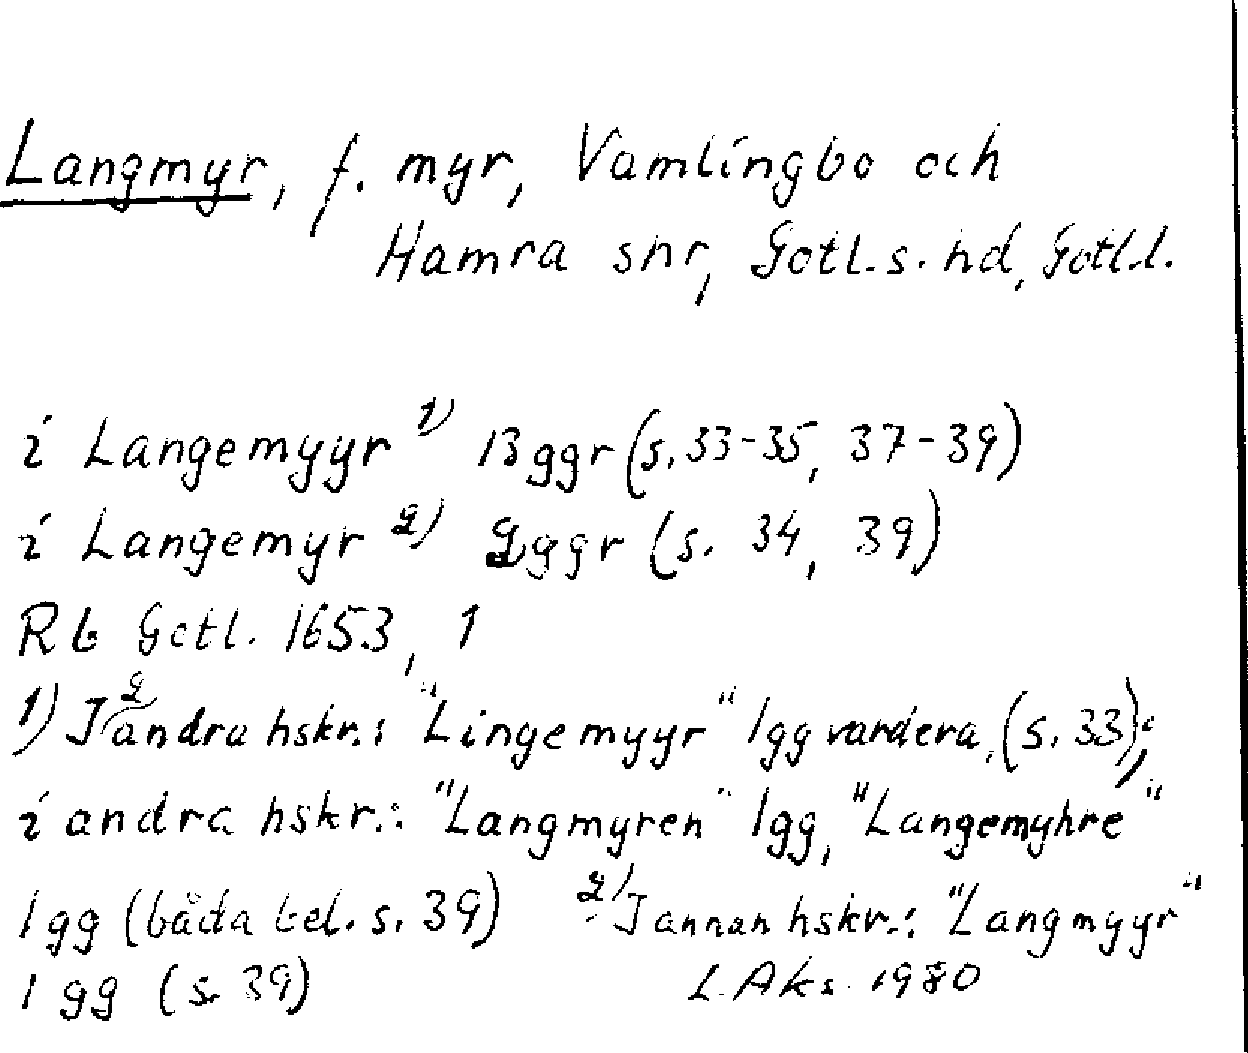 Langmyr, f. myr, Vamlingbo och
Hamra snr, Gotl. s. hd, Gotl.l.
i Langemyyr 1) 13 ggr (s. 33-35, 37-39)
i Langemyr 2) 2 ggr (s. 34, 39)
Rb Gotl. 1653, 1
1) I 2 andra hskr.: "Lingemyyr" 1 gg vardera, (s. 33);
i andra hskr.: "Langmyren" 1 gg, "Langemyhre"
1 gg (båda bel. s. 39) 2) I annan hskr.: "Langmyyr"
1 gg (s. 39) L. Aks. 1980